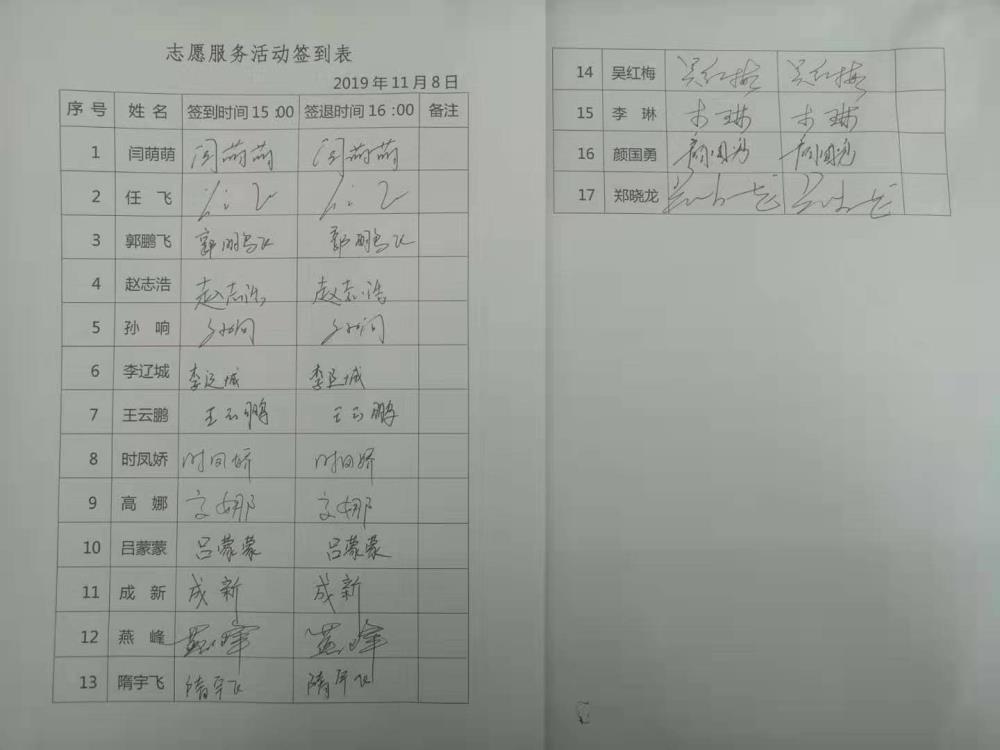 志愿服务活动签到表
2019年11月8日
序号 姓名 签到时间15:00 签退时间16:00 备注
1 闫萌萌 闫萌萌 闫萌萌
2 任飞 任飞 任飞
3 郭鹏飞 郭鹏飞 郭鹏飞
4 赵志浩 赵志浩 赵志浩
5 孙响 孙响 孙响
6 李辽城 李辽城 李辽城
7 王云鹏 王云鹏 王云鹏
8 时凤娇 时凤娇 时凤娇
9 高娜 高娜 高娜
10 吕蒙蒙 吕蒙蒙 吕蒙蒙
11 成新 成新 成新
12 燕峰 燕峰 燕峰
13 隋宇飞 隋宇飞 隋宇飞
14 吴红梅 吴红梅 吴红梅
15 李琳 李琳 李琳
16 颜国勇 颜国勇 颜国勇
17 郑晓龙 郑晓龙 郑晓龙